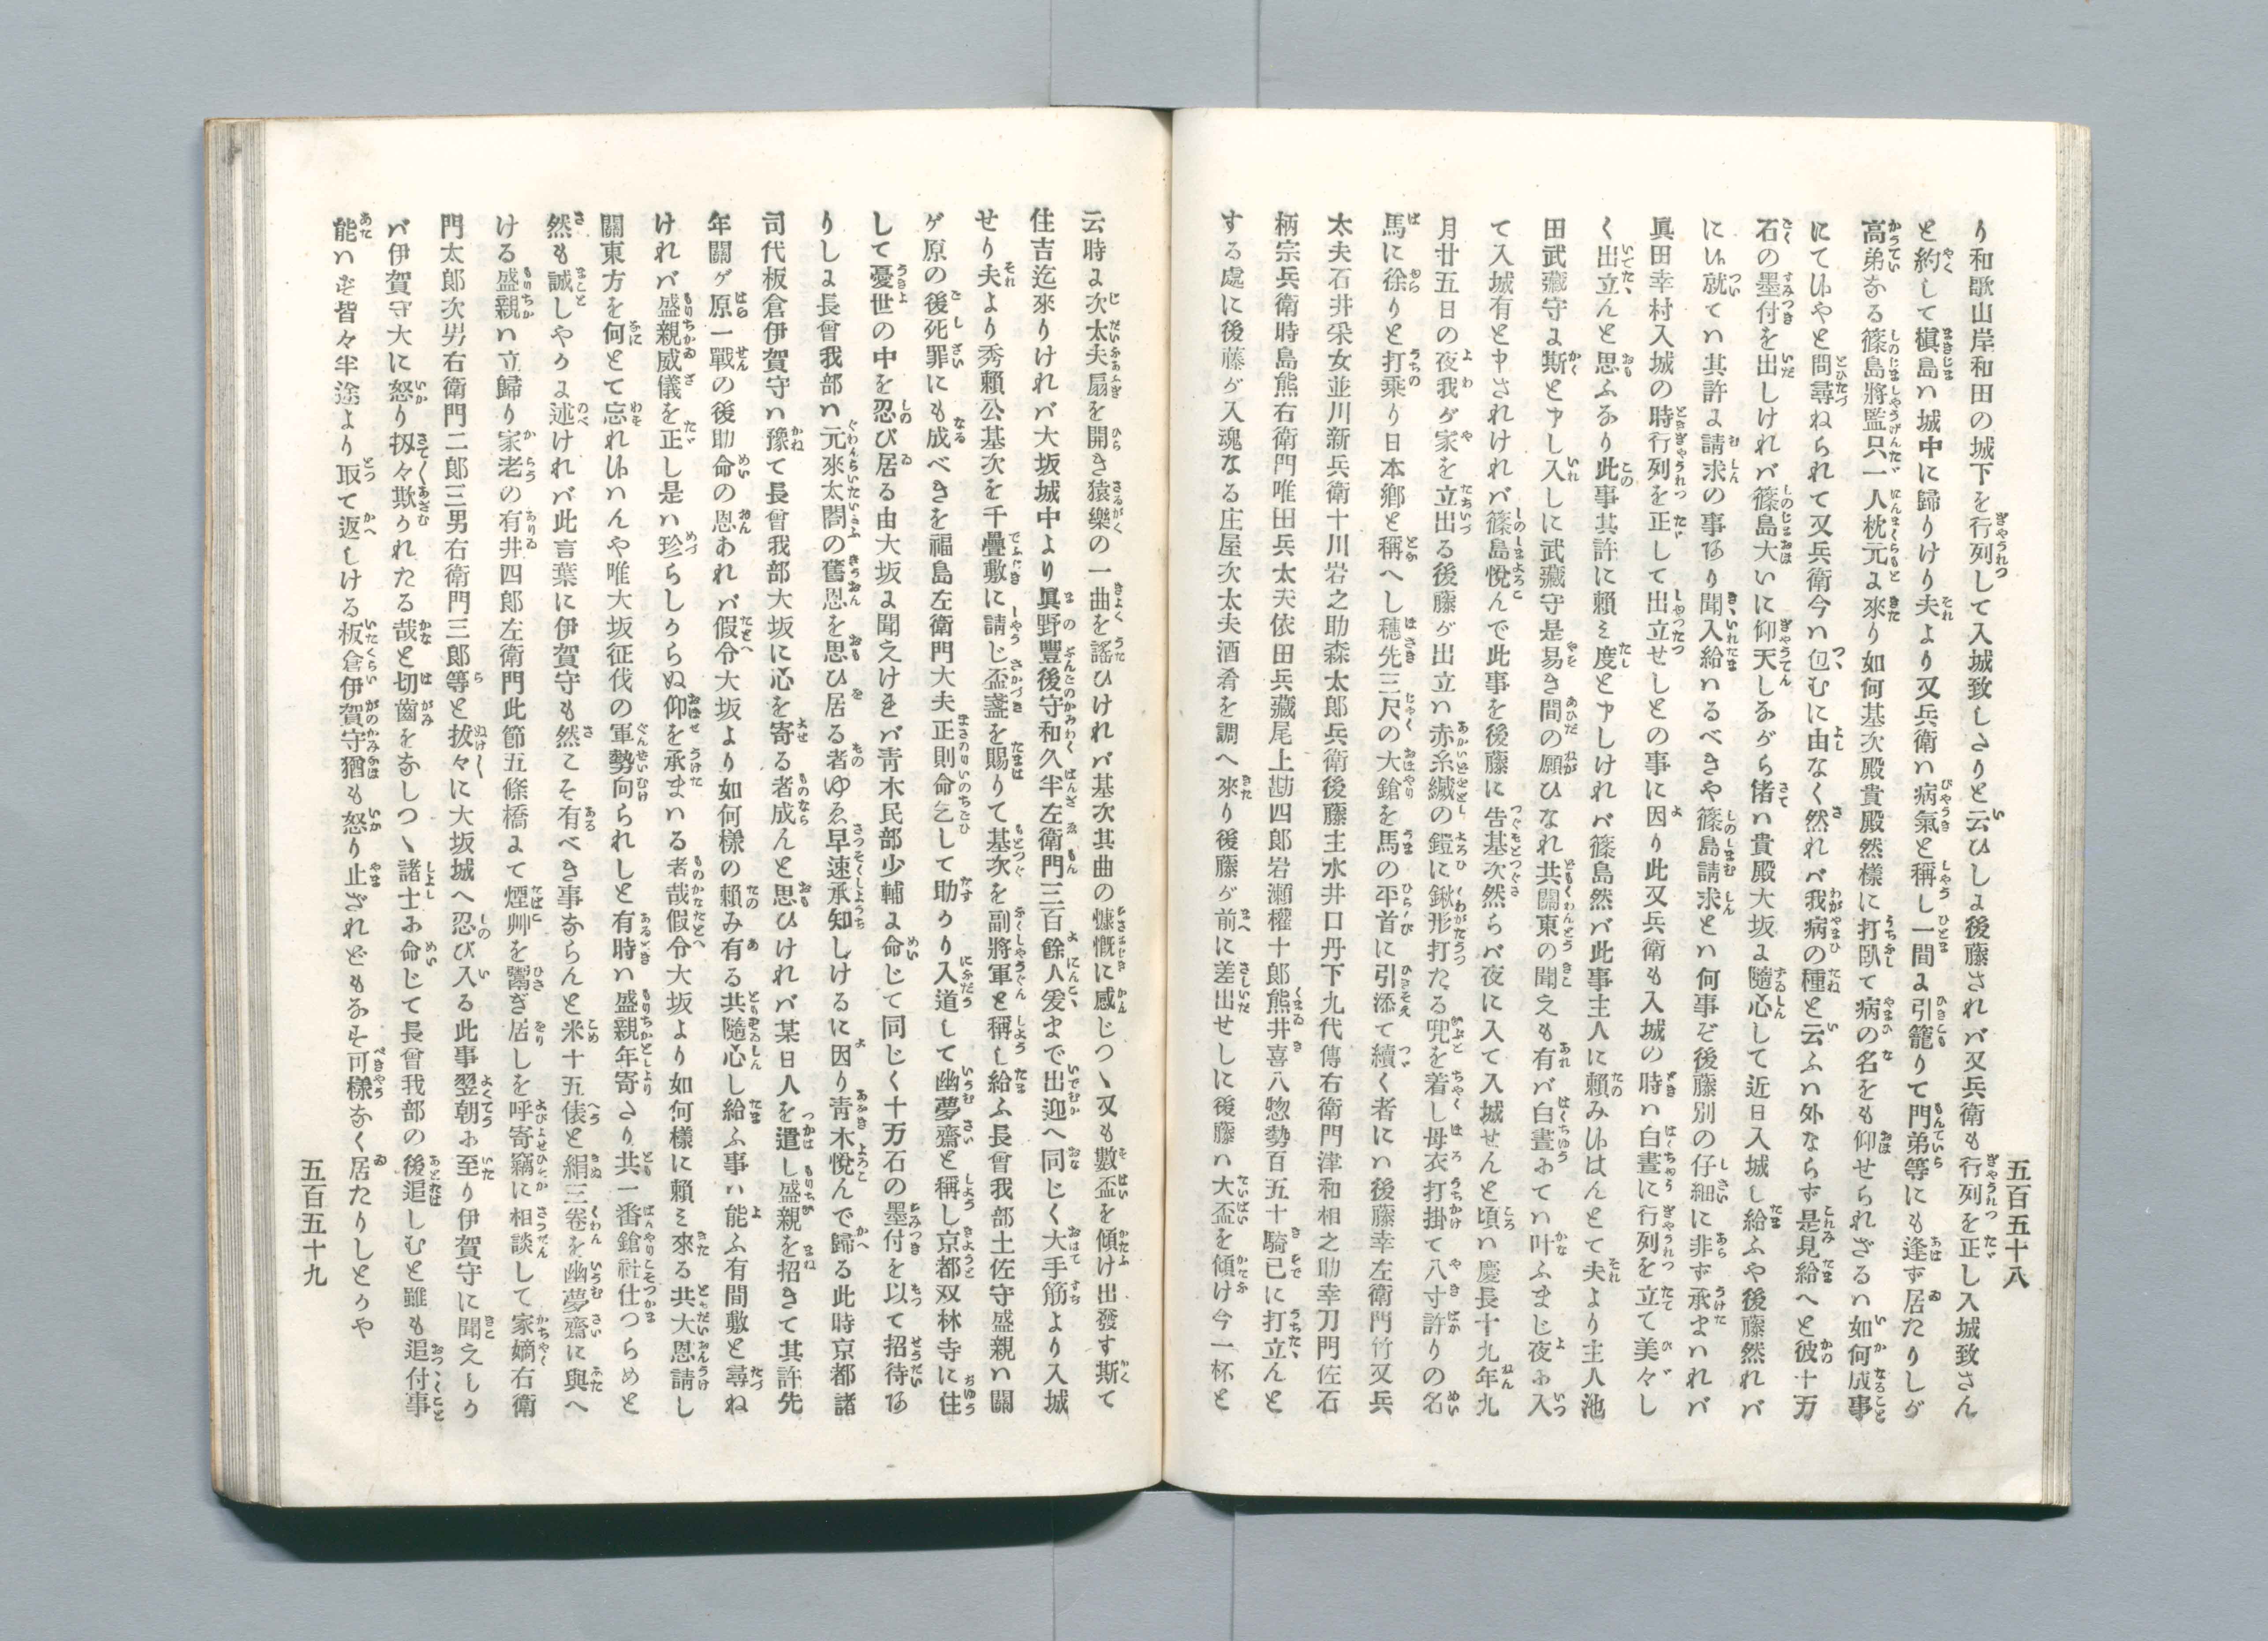 五百五十八
り和歌山岸和田の城下を行列して入城致しさりと云ひしよ後藤されバ又兵衛も行列を正し入城致さん
と約して槇島ハ城中に歸りけり夫より又兵衛ハ病氣と稱し一間よ引籠りて門弟等にも逢ず居たりしが
高弟なる篠島將監只一人枕元よ來り如何基次殿貴殿然樣に打臥て病の名をも仰せられざるハ如何成事
にて候やと問尋ねられて又兵衛今ハ包むに由なく然れバ我病の種と云ふハ外ならず是見給へと彼十万
石の墨付を出しけれバ篠島大いに仰天しながら偖ハ貴殿大坂よ隨心して近日入城し給ふや後藤然れバ
に候就てハ其許よ請求の事あり聞入給ハるべきや篠島請求とハ何事ぞ後藤別の仔細に非ず承まハれバ
眞田幸村入城の時行列を正して出立せしとの事に因り此又兵衛も入城の時ハ白晝に行列を立て美々し
く出立んと思ふなり此事其許に賴ミ度と申しけれバ篠島然バ此事主人に賴み候はんとて夫より主人池
田武藏守よ斯と申し入しに武藏守是易き間の願ひなれ共關東の聞えも有バ白晝おてハ叶ふまじ夜お入
て入城有と申されけれバ篠島悅んで此事を後藤に告基次然らバ夜に入て入城せんと頃ハ慶長十九年九
月廿五日の夜我が家を立出る後藤が出立ハ赤糸縅の鎧に鍬形打たる兜を着し母衣打掛て八寸許りの名
馬に徐りと打乘り日本鄕と稱へし穗先三尺の大鎗を馬の平首に引添て續く者にハ後藤幸左衛門竹又兵
太夫石井采女並川新兵衛十川岩之助森太郎兵衛後藤主水井口丹下九代傳右衛門津和相之助幸刀門佐石
柄宗兵衛時島熊右衛門唯田兵太夫依田兵藏尾上勘四郎岩瀨權十郎熊井喜八惣勢百五十騎已に打立んと
する處に後藤が入魂なる庄屋次太夫酒肴を調へ來り後藤が前に差出せしに後藤ハ大盃を傾け今一杯と
云時よ次太夫扇を開き猿樂の一曲を謠ひけれバ基次其曲の慷慨に感じつゝ又も數盃を傾け出發す斯て
住吉迄來りけれバ大坂城中より眞野豐後守和久半左衛門三百餘人爰まで出迎へ同じく大手筋より入城
せり夫より秀賴公基次を千疊敷に請じ盃盞を賜りて基次を副將軍と稱し給ふ長曾我部土佐守盛親ハ關
ゲ原の後死罪にも成べきを福島左衛門大夫正則命乞して助かり入道して幽夢齋と稱し京都双林寺に住
して憂世の中を忍び居る由大坂よ聞えけれバ靑木民部少輔よ命じて同じく十万石の墨付を以て招待あ
りしよ長曾我部ハ元來太閤の舊恩を思ひ居る者ゆゑ早速承知しけるに因り靑木悅んで歸る此時京都諸
司代板倉伊賀守ハ豫て長曾我部大坂に心を寄る者成んと思ひけれバ某日人を遣し盛親を招きて其許先
年關ゲ原一戰の後助命の恩あれバ假令大坂より如何樣の賴み有る共隨心し給ふ事ハ能ふ有間敷と尋ね
けれバ盛親威儀を正し是ハ珍らしからぬ仰を承まハる者哉假令大坂より如何樣に賴ミ來る共大恩請し
關東方を何とて忘れ候ハんや唯大坂征伐の軍勢向られしと有時ハ盛親年寄さり共一番鎗社仕つらめと
然も誠しやかよ述けれバ此言葉に伊賀守も然こそ有べき事ならんと米十五俵と絹三卷を幽夢齋に與へ
ける盛親ハ立歸り家老の有井四郎左衛門此節五條橋よて煙艸を鬻ぎ居しを呼寄竊に相談して家嫡右衛
門太郎次男右衛門二郎三男右衛門三郎等と拔々に大坂城へ忍び入る此事翌朝お至り伊賀守に聞えしか
バ伊賀守大に怒り扨々欺かれたる哉と切齒をなしつゝ諸士お命じて長曾我部の後追しむと雖も追付事
能ハず皆々半途より取て返しける板倉伊賀守猶も怒り止ざれどもなす可樣なく居たりしとかや
五百五十九